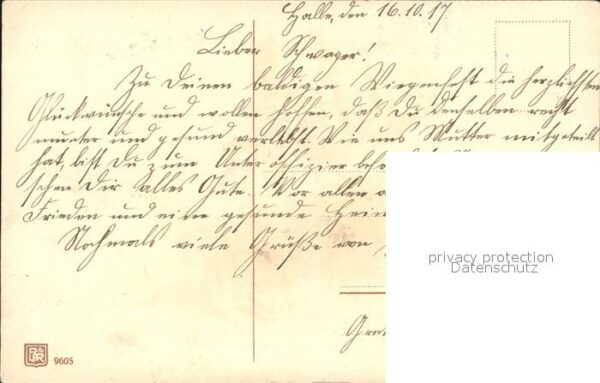 Halle, den 16.10.17.
Lieber Schwager!
Zu Deinen baldigen Wiegenfest die herzlichsten
Glückwünsche und wollen hoffen, daß Du denselben recht
munter und gesund verlebst. Wie uns Mutter mitgeteilt
hat, bist Du zum Unteroffizier
schen Dir alles Gute. Vor allen
Frieden und eine gesunde
Nochmals viele Grüße von
privacy protection
Datenschutz
9605